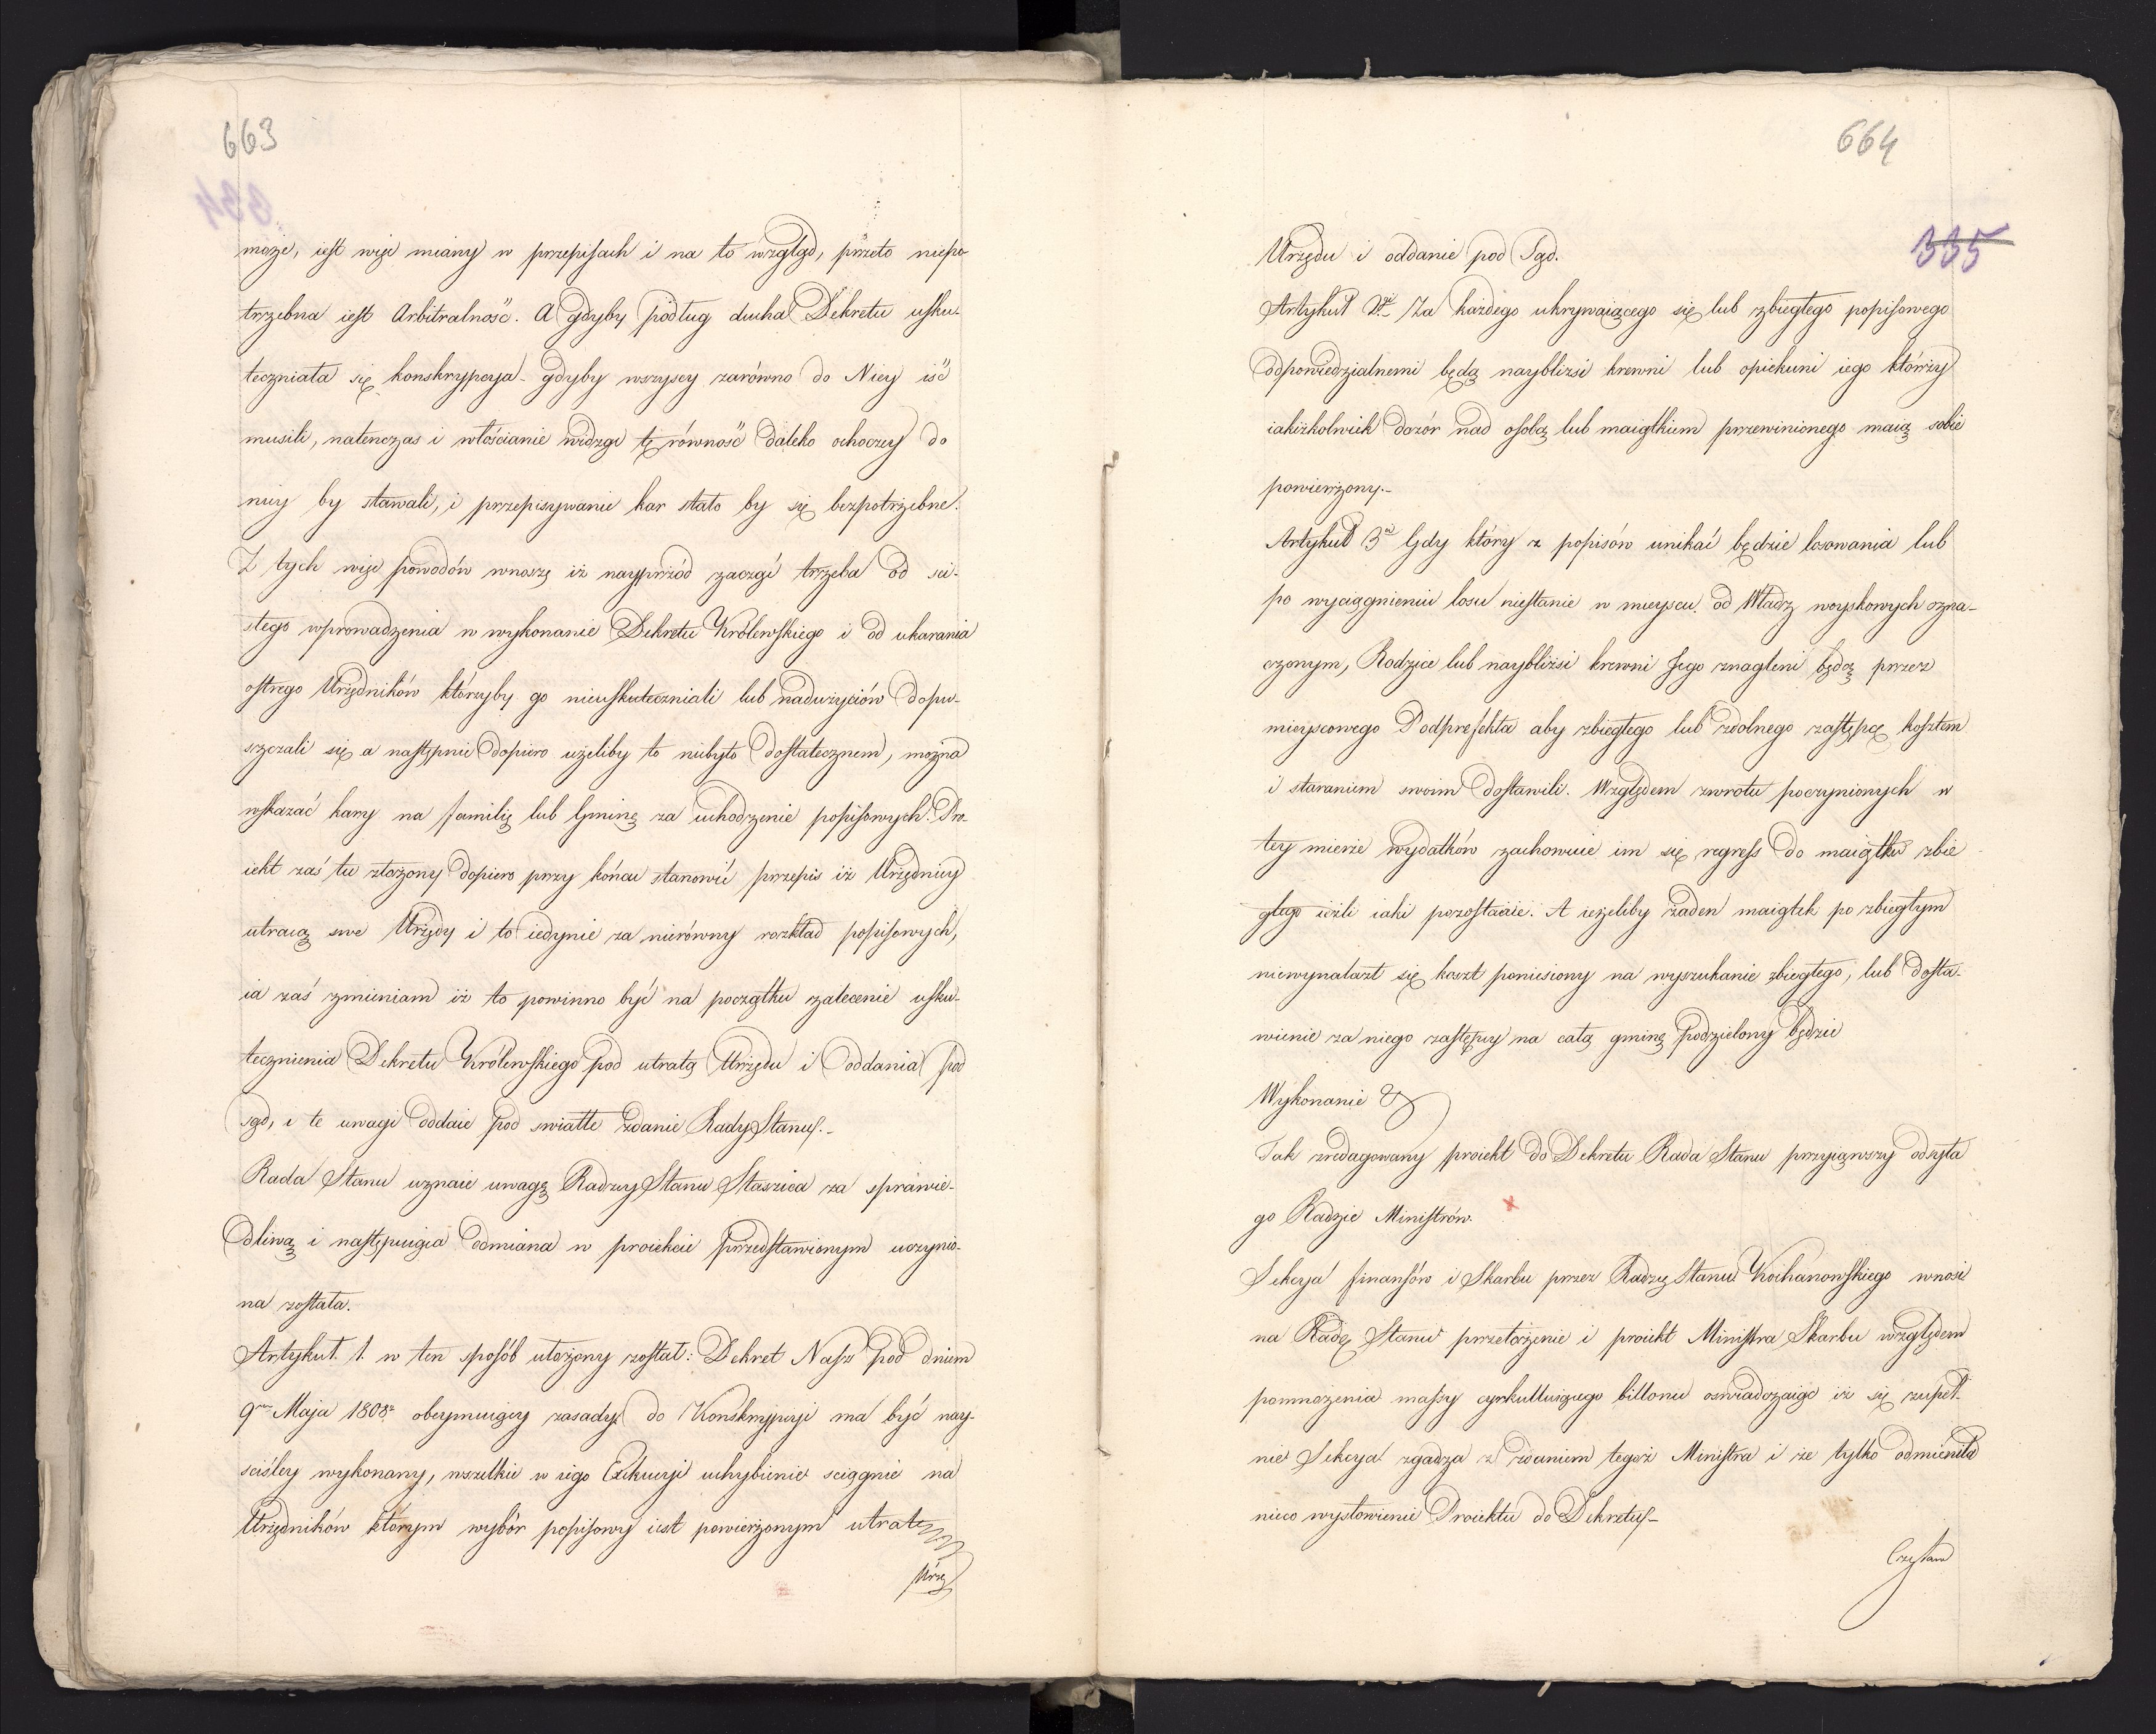 663
może, iest więc miany w przepisach i na to wzgląd, przeto niepo
trzebna iest Arbitralność. A gdyby podług ducha Dekretu usku-
teczniała się konskrypcya - gdyby wszyscy zarówno do Niey iść
musili, natenczas i włościanie widząc tę równość daleko ochoczey do
niey by stawali, i przepisywanie kar stało by się bezpotrzebne.
Z tych więc powodów wnoszę iż nayprzód zacząć trzeba od sci-
słego wprowadzenia w wykonanie Dekretu Królewskiego i od ukarania
ostrego Urzędników którzyby go nieuskuteczniali lub nadużyciów dopu-
szczali się a następnie dopiero ieżeliby to niebyło dostatecznem, można
wskazać kary na familię lub Gminę za uchodzenie popisowych. Pro-
iekt zaś tu złożony dopiero przy końcu stanowić przepis iż Urzędnicy
utracą swe Urzędy i to iedynie za nierówny rozkład popisowych,
ia zaś zmieniam iż to powinno być na początku zalecenie usku-
tecznienia Dekretu Królewskiego pod utratą Urzędu i oddania pod
sąd, i te uwagi oddaie pod swiatłe zdanie Rady Stanu.-
Rada Stanu uznaie uwagę Radzcy Stanu Staszica za sprawie-
dliwą i następuiąca odmiana w proiekcie przedstawionym uczynio-
na została.
Artykuł. 1. w ten sposób ułożony został: Dekret Nasz pod dniem
9go Maja 1808r obeymuiący zasady do Konskrypcyi ma być nay-
sciśley wykonany, wszelkie w iego Exekucyi uchybienie sciągnie na
Urzędników którym wybór popisowy iest powierzonym utratę
Urzę
664
335
Urzędu i oddanie pod Sąd.
Artykuł 2gi Za każdego ukrywaiącego się lub zbiegłego popisowego
odpowiedzialnemi będą nayblizsi krewni lub opiekuni iego którzy
iakiżkolwiek dozór nad osobą lub maiątkiem przewinionego maią sobie
powierzony.-
Artykuł 3ci Gdy który z popisów unikać będzie losowania lub
po wyciągnieniu losu niestanie w mieyscu od Władz woyskowych ozna-
czonym, Rodzice lub nayblizsi krewni Jego znagleni będą przez
mieyscowego Podprefekta aby zbiegłego lub zdolnego zastępcę kosztem
i staraniem swoim dostawili. Względem zwrotu poczynionych w
tey mierze wydatków zachowuie im się regress do maiątku zbie
głego ieżli iaki pozostaie. A ieżeliby żaden maiątek po zbiegłym
niewynalazł się koszt poniesiony na wyszukanie zbiegłego, lub dosta-
wienie za niego zastępcy na całą gminę podzielony będzie
Wykonanie &
Tak zredagowany proiekt do Dekretu Rada Stanu przyiąwszy odsyła
go Radzie Ministrów.
Sekcya finansów i Skarbu przez Radzcę Stanu Kochanowskiego wnosi
na Radę Stanu przełożenie i proiekt Ministra Skarbu względem
pomnożenia massy cyrkulluiącego billonu oswiadczaiąc iż się zupeł-
nie Sekcya zgadza z zdaniem tegoż Ministra i że tylko odmieniła
nieco wysłowienie Proiektu do Dekretu-